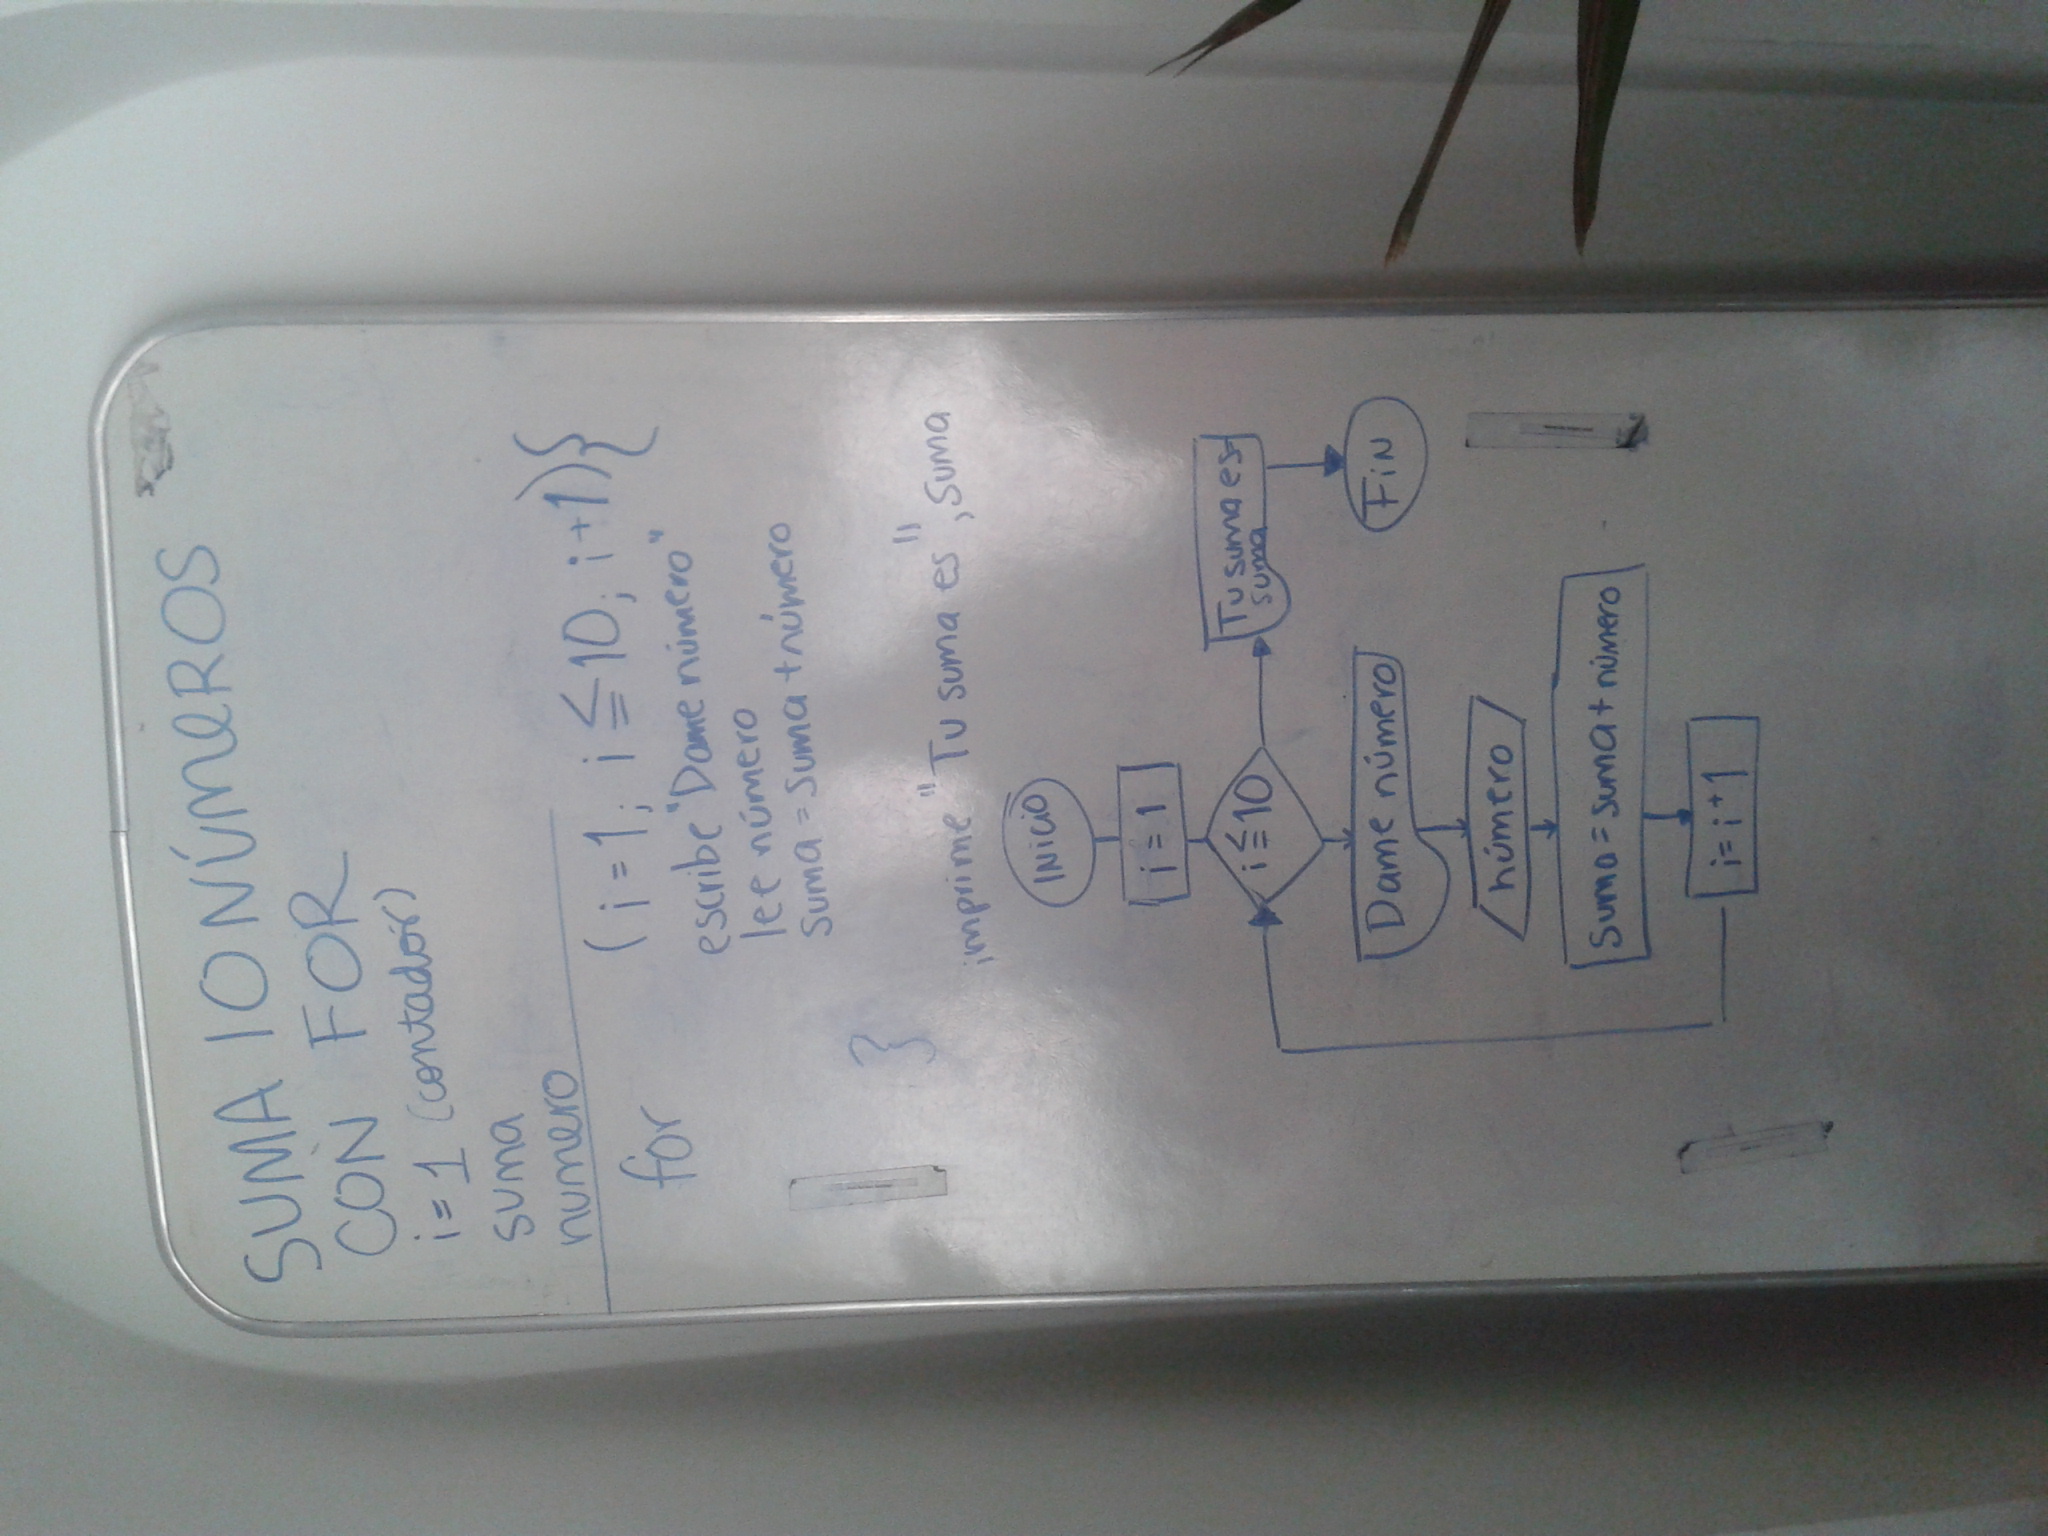 SUMA 10 NÚMEROS
CON FOR
i=1 (contador)
suma
numero
for (i=1; i≦10; i+1){
escribe "Dame número"
lee número
suma = suma + número
}
imprime "Tu suma es", suma
INICIO
i = 1
i≦10
Tu suma es
suma
Dame número
FIN
número
suma = suma + número
i = i + 1